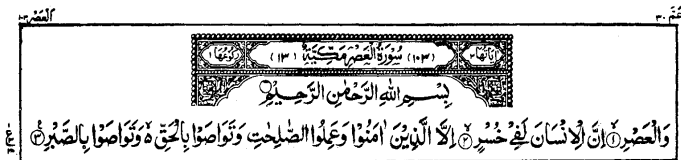 عَمَّ ٣٠
العصر ١٠٣
اٰيَاتُهَا ٣ (١٠٣) سُوْرَةُ الْعَصْرِ مَكِّيَّةٌ (١٣) رُكُوْعُهَا ١
بِسْمِ اللّٰهِ الرَّحْمٰنِ الرَّحِيْمِ
وَالْعَصْرِ ۙ‏﴿١﴾ اِنَّ الْاِنْسَانَ لَفِيْ خُسْرٍ ۙ‏﴿٢﴾ اِلَّا الَّذِيْنَ اٰمَنُوْا وَعَمِلُوا الصّٰلِحٰتِ وَتَوَاصَوْا بِالْحَقِّ ۙ وَتَوَاصَوْا بِالصَّبْرِ ‏﴿٣﴾